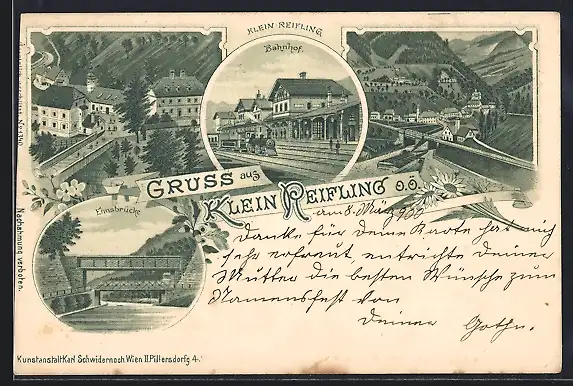 KLEIN REIFLING
Bahnhof.
GRUSS aus
KLEIN REIFLING O.Ö.
am 8. März 900
Ennsbrücke
Danke für Deine Karte hat mich
sehr erfreut entrichte Deiner
Mutter die besten Wünsche zum
Namensfest von
Deiner
Nachahmung verboten.
Kunstanstalt Karl Schwidernoch Wien II. Pillersdorfg 4.